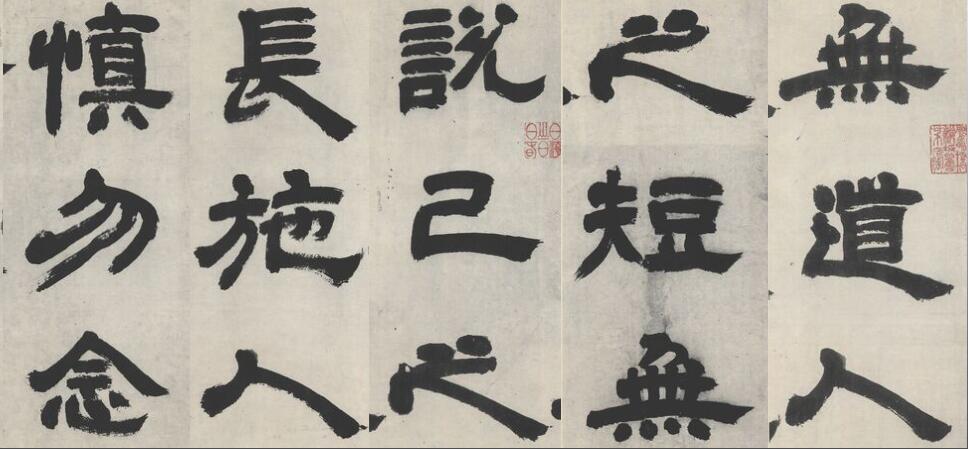 無道人
之短無
說己之
長施人
慎勿念